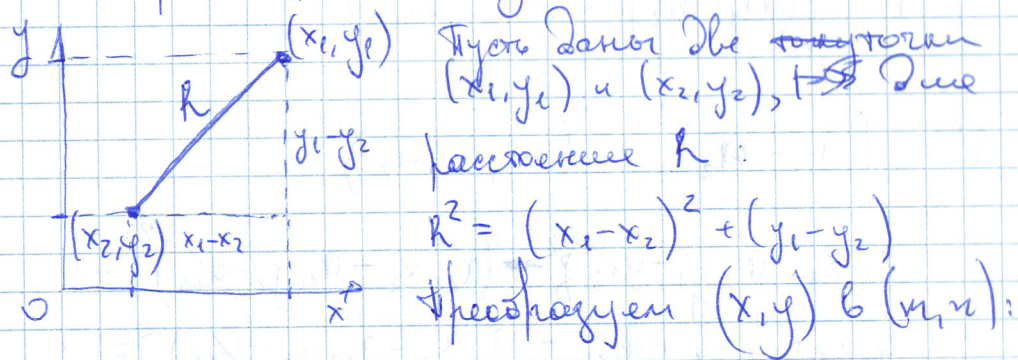 y
(x₁, y₁)
R
y₁-y₂
(x₂, y₂) x₁-x₂
0
x
Пусть даны две точки
(x₁, y₁) и (x₂, y₂), Для
расстояния R :
R² = (x₁-x₂)² + (y₁-y₂)
Преобразуем (x, y) в (m, n):